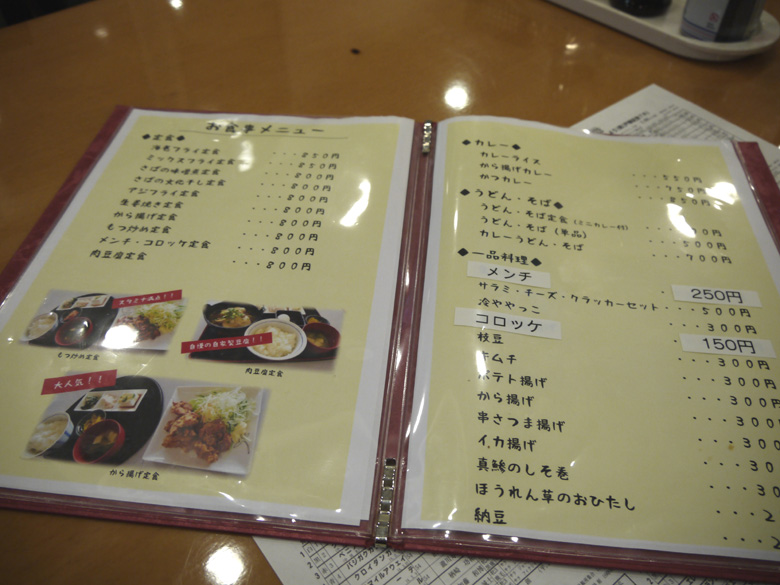 お食事メニュー
◆定食◆
海老フライ定食 ・・・850円
ミックスフライ定食 ・・・850円
さばの味噌煮定食 ・・・800円
さばの文化干し定食 ・・・800円
アジフライ定食 ・・・800円
生姜焼き定食 ・・・800円
から揚げ定食 ・・・800円
もつ炒め定食 ・・・800円
メンチ・コロッケ定食 ・・・800円
肉豆腐定食 ・・・800円
スタミナ満点!!
もつ炒め定食
自慢の自家製豆腐!!
肉豆腐定食
大人気!!
から揚げ定食
◆カレー◆
カレーライス ・・・550円
から揚げカレー ・・・750円
かつカレー ・・・850円
◆うどん・そば◆
うどん・そば定食(ミニカレー付)
うどん・そば(単品) ・・・500円
カレーうどん・そば ・・・700円
◆一品料理◆
メンチ 250円
サラミ・チーズ・クラッカーセット ・・・500円
冷ややっこ ・・・300円
コロッケ 150円
枝豆 ・・・300円
キムチ ・・・300円
ポテト揚げ ・・・300
から揚げ ・・・300
串さつま揚げ ・・・30
イカ揚げ ・・・30
真鯵のしそ巻 ・・・30
ほうれん草のおひたし ・・・2
納豆 ・・・2